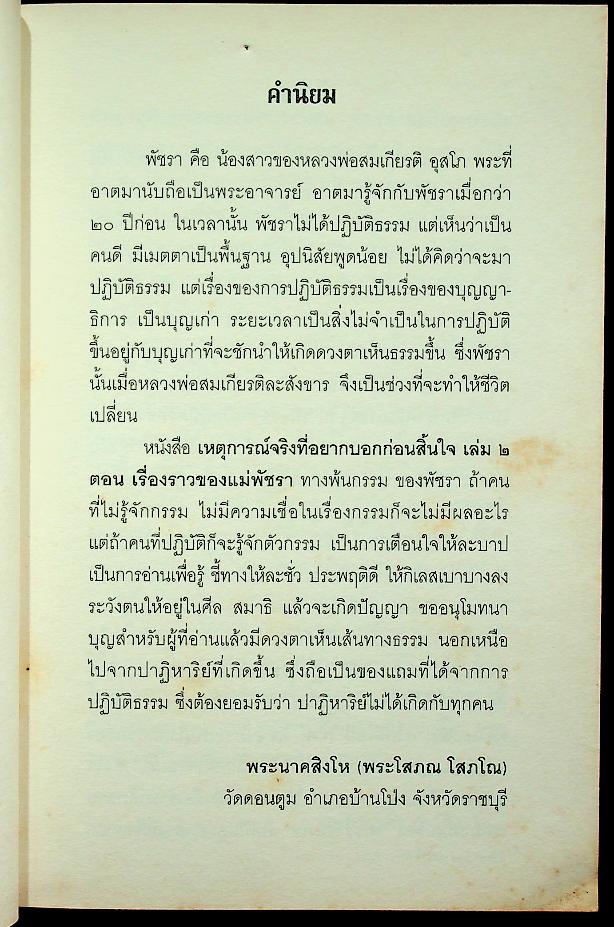 คำนิยม
พัชรา คือ น้องสาวของหลวงพ่อสมเกียรติ อุสโภ พระที่
อาตมานับถือเป็นพระอาจารย์ อาตมารู้จักกับพัชราเมื่อกว่า
๒๐ ปีก่อน ในเวลานั้น พัชราไม่ได้ปฏิบัติธรรม แต่เห็นว่าเป็น
คนดี มีเมตตาเป็นพื้นฐาน อุปนิสัยพูดน้อย ไม่ได้คิดว่าจะมา
ปฏิบัติธรรม แต่เรื่องของการปฏิบัติธรรมเป็นเรื่องของบุญญา-
ธิการ เป็นบุญเก่า ระยะเวลาเป็นสิ่งไม่จำเป็นในการปฏิบัติ
ขึ้นอยู่กับบุญเก่าที่จะชักนำให้เกิดดวงตาเห็นธรรมขึ้น ซึ่งพัชรา
นั้นเมื่อหลวงพ่อสมเกียรติละสังขาร จึงเป็นช่วงที่จะทำให้ชีวิต
เปลี่ยน
หนังสือ เหตุการณ์จริงที่อยากบอกก่อนสิ้นใจ เล่ม ๒
ตอน เรื่องราวของแม่พัชรา ทางพ้นกรรม ของพัชรา ถ้าคน
ที่ไม่รู้จักกรรม ไม่มีความเชื่อในเรื่องกรรมก็จะไม่มีผลอะไร
แต่ถ้าคนที่ปฏิบัติก็จะรู้จักตัวกรรม เป็นการเตือนใจให้ละบาป
เป็นการอ่านเพื่อรู้ ชี้ทางให้ละชั่ว ประพฤติดี ให้กิเลสเบาบางลง
ระวังตนให้อยู่ในศีล สมาธิ แล้วจะเกิดปัญญา ขออนุโมทนา
บุญสำหรับผู้ที่อ่านแล้วมีดวงตาเห็นเส้นทางธรรม นอกเหนือ
ไปจากปาฏิหาริย์ที่เกิดขึ้น ซึ่งถือเป็นของแถมที่ได้จากการ
ปฏิบัติธรรม ซึ่งต้องยอมรับว่า ปาฏิหาริย์ไม่ได้เกิดกับทุกคน
พระนาคสิงโห (พระโสภณ โสภโณ)
วัดดอนตูม อำเภอบ้านโป่ง จังหวัดราชบุรี